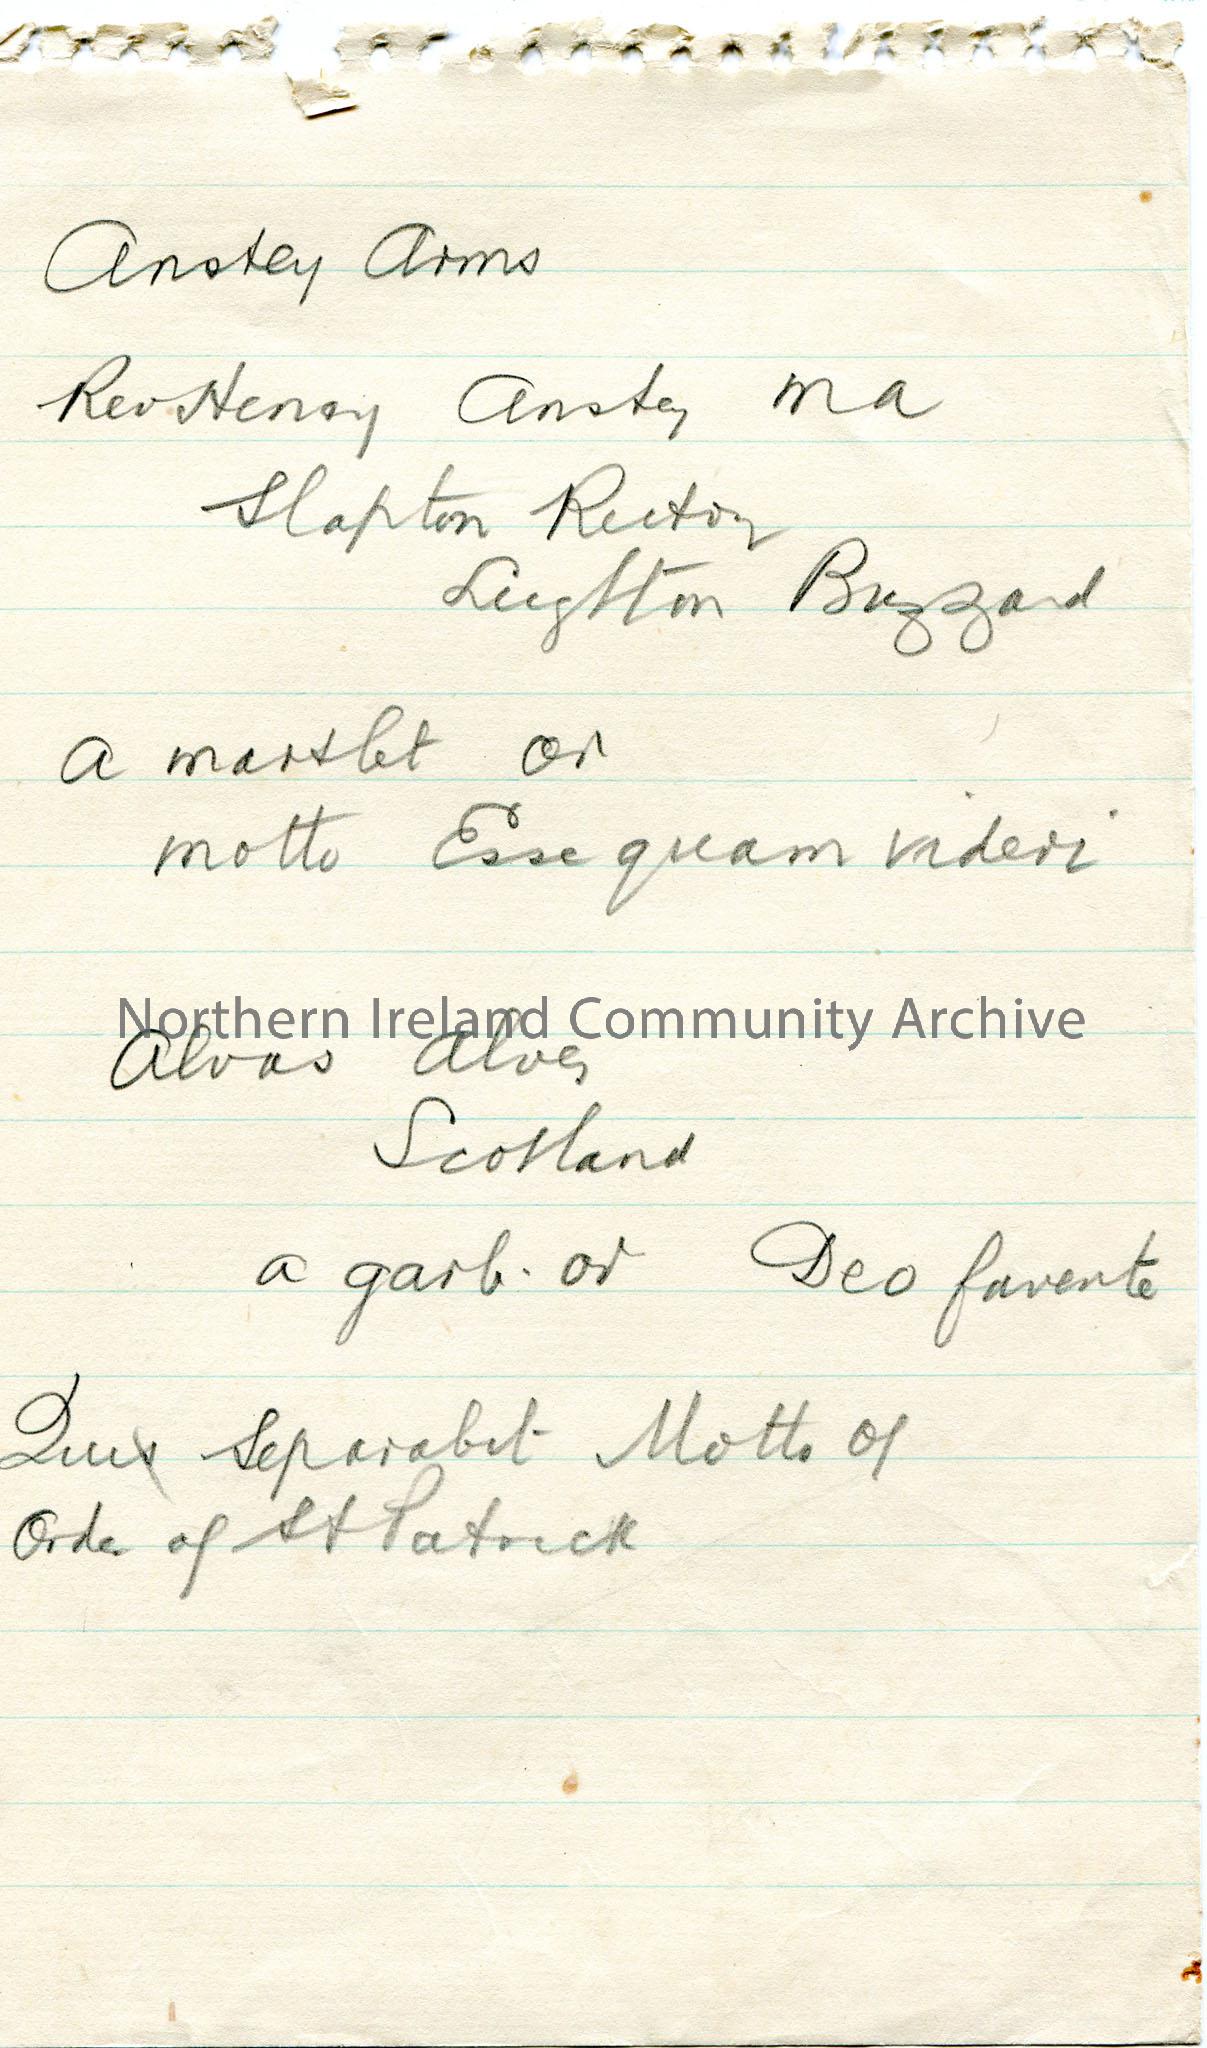 Anstey Arms
Rev Henry Anstey MA
Slapton Rectory
Leighton Buzzard
a martlet or
motto Esse quam videri
Northern Ireland Community Archive
Alvas Alves
Scotland
a garb. or Deo favente
Quis Separabit Motto of
Order of St Patrick